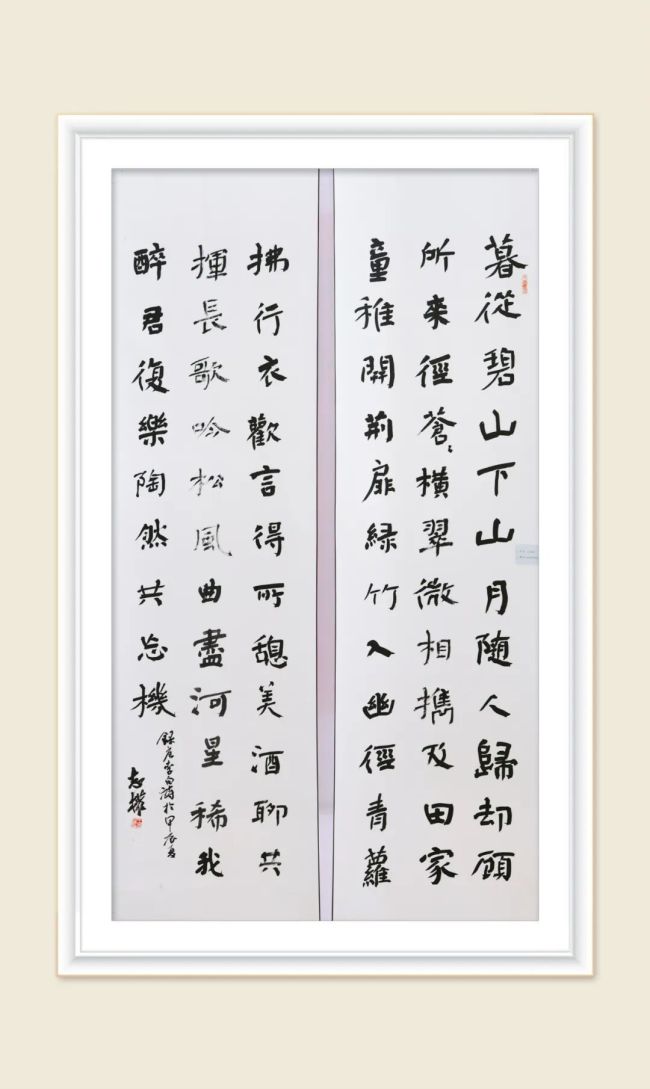 暮從碧山下山月随人歸却顾
所來徑蒼〻橫翠微相攜及田家
童稚開荊扉緑竹入幽徑青蘿
拂行衣歡言得所憩美酒聊共
揮長歌吟松風曲盡河星稀我
醉君復樂陶然共忘機
錄唐李白詩於甲辰年
志權